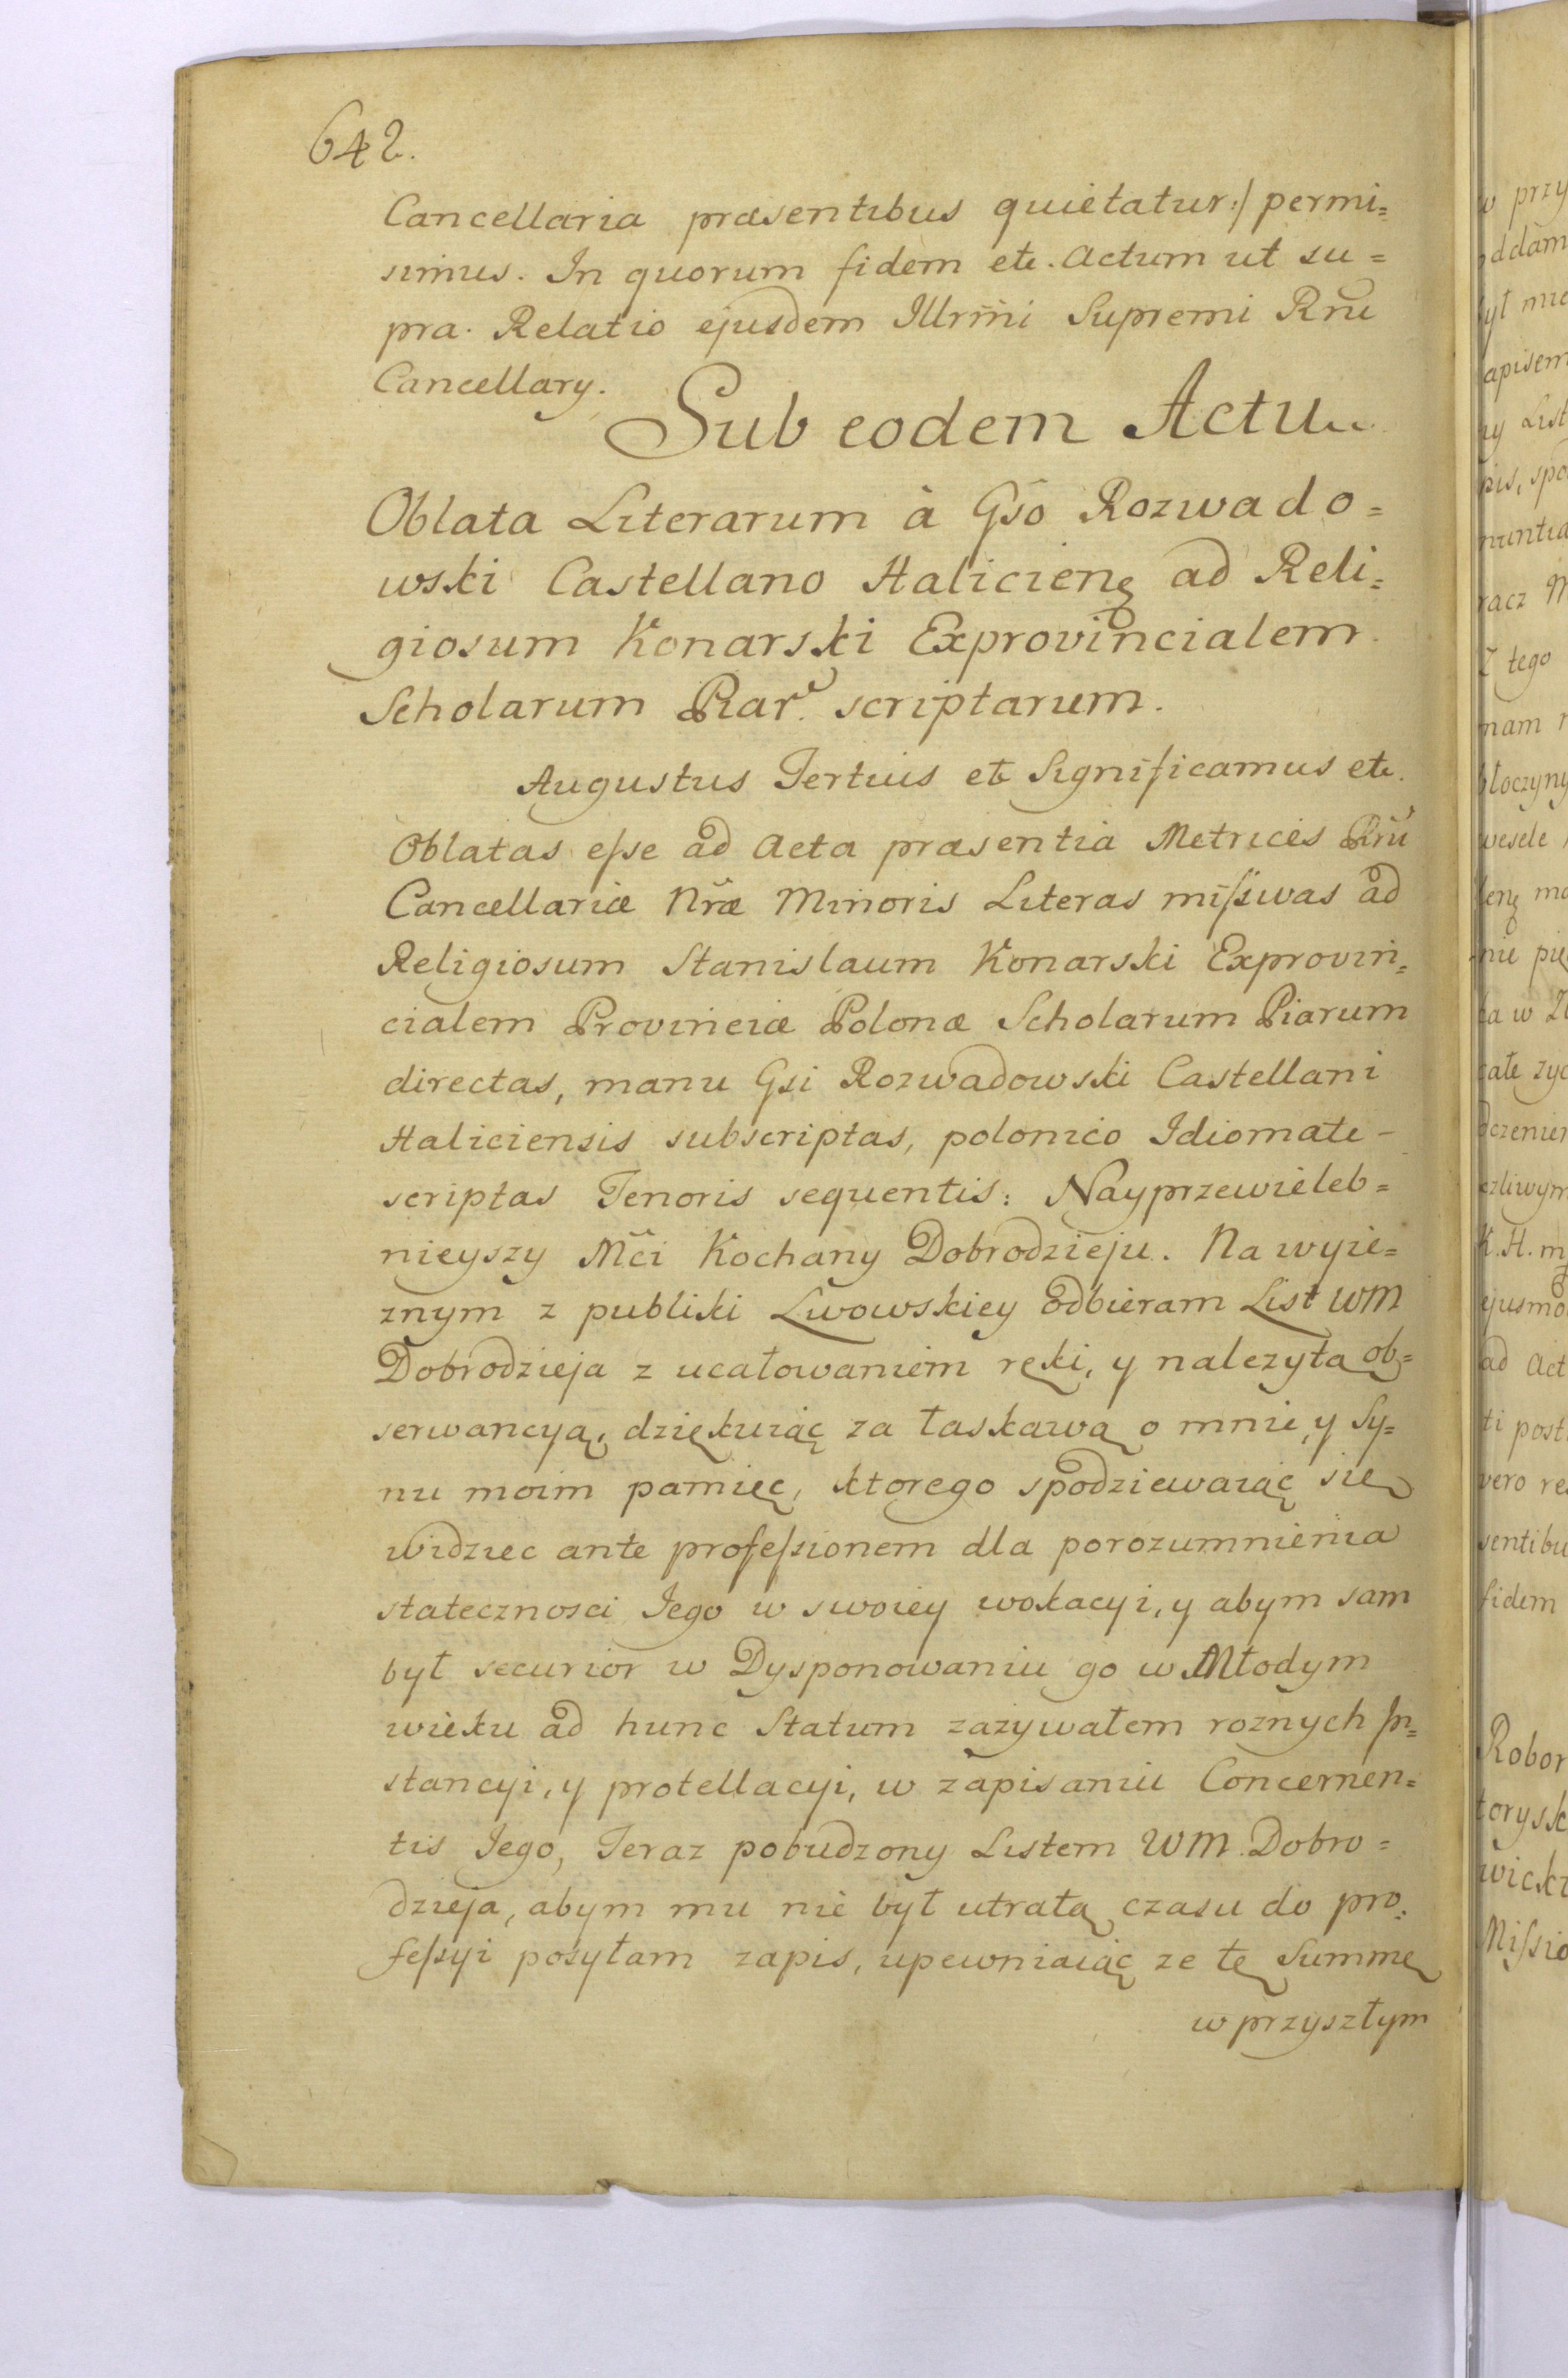 642.
Cancellaria præsentibus quietatur:/ permi=
simus. In quorum fidem etc. Actum ut su=
pra. Relatio ejusdem Illrm̃i Supremi Rñi
Cancellary.
Sub eodem Actu
Oblata Literarum à Gs̃o Rozwado=
wski Castellano Halicien̄ę ad Reli=
giosum Konarski Exprovincialem
Scholarum Piar. scriptarum.
Augustus Tertius etc Significamus etc.
Oblatas eſse ad Acta præsentia Metrices Rñi
Cancellariæ Nr̃æ Minoris Literas miſsivas ad
Religiosum Stanislaum Konarski Exprovin=
cialem Provinciæ Polonæ Scholarum Piarum
directas, manu Gsi Rozwadowski Castellani
Haliciensis subscriptas, polonico Idiomate -
scriptas Tenoris sequentis: Nayprzewieleb=
nieyszy Mc̃i Kochany Dobrodzieju. Na wyie=
znym z publiki Lwowskiey odbieram List WM
Dobrodzieja z ucałowaniem ręki, y nalezytą ob=
serwancyą, dziękuiąc za łaskawą o mnie, y Sy=
nu moim pamięc, ktorego spodziewaiąc się
widziec ante profeſsionem dla porozumnienia
statecznosci Jego w swoiey wokacyi, y abym sam
był securior w Dysponowaniu go w Młodym
wieku ad hunc Statum zazywałem roznych In=
stancyi, y protellacyi, w zapisaniu Concernen=
tis Jego, Teraz pobudzony Listem WM. Dobro=
dzieja, abym mu nie był utratą czasu do pro=
feſsyi posyłam zapis, upewniaiąc ze tę Summę
w przyszłym